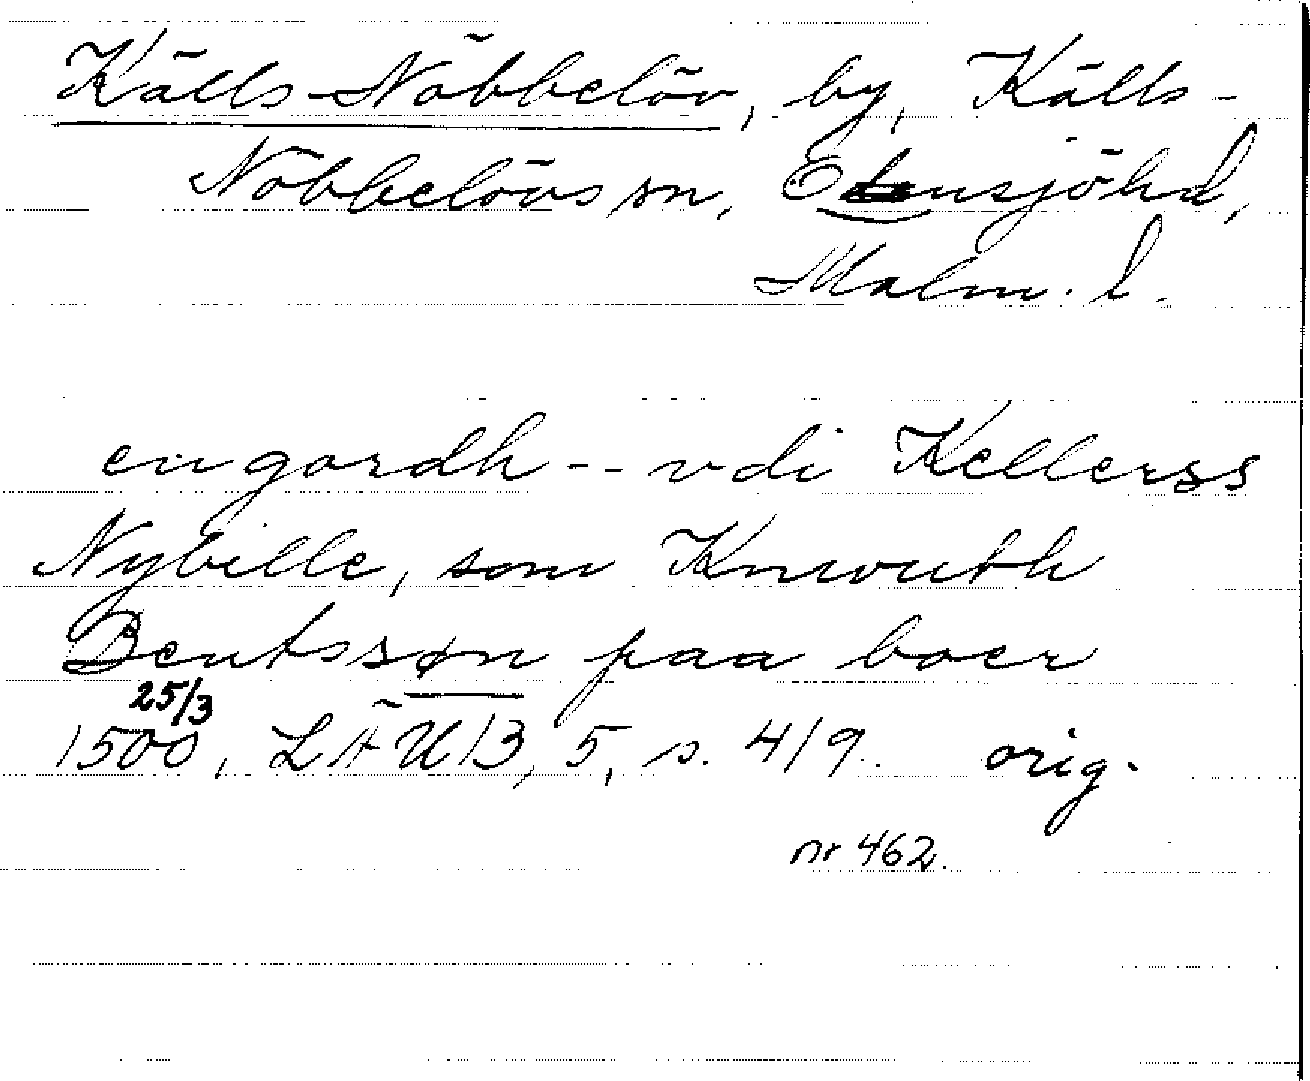 Källs-Nöbbelöv, by, Källs-
Nöbbelövs sn, Onsjö hd,
Malm. l.
en gordh -- vdi Kellerss
Nybille, som Knwuth
Bentssøn paa boer
25/3
1500, LÄUB, 5, s. 419. orig.
nr 462.